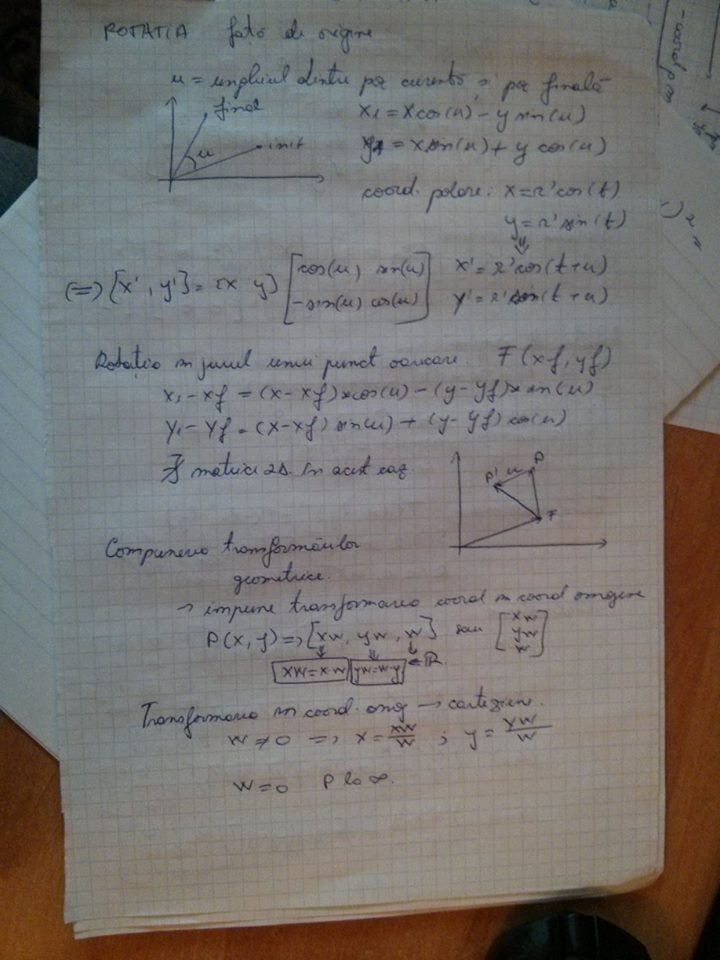 ROTATIA față de origine
u = unghiul dintre poz curentă și poz finală
final
init
u
x1 = x cos(u) - y sin(u)
y1 = x sin(u) + y cos(u)
coord. polare: x = r*cos(t)
y = r*sin(t)
x' = r*cos(t+u)
y' = r*sin(t+u)
(=) [x', y'] = [x y] [cos(u) sin(u)
-sin(u) cos(u)]
Rotația în jurul unui punct oarecare. F(xf, yf)
x1 - xf = (x - xf)*cos(u) - (y - yf)*sin(u)
y1 - yf = (x - xf) sin(u) + (y - yf) cos(u)
∄ matrice 2D. în acest caz
P' u P
F
Compunerea transformărilor
geometrice.
→ impune transformarea coord în coord omogene
P(x, y) => [xw, yw, w] sau [xw
yw
w]
xw = x·w yw = w·y ∈ R
Transformarea în coord. omg → carteziene.
w ≠ 0 => x = xw/w ; y = yw/w
w = 0 P la ∞.